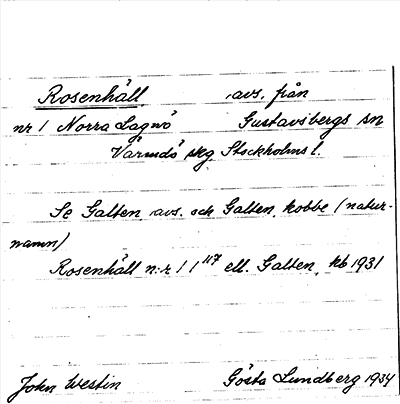 Rosenhäll avs. från
nr 1 Norra Lagnö Gustavsbergs sn
Värmdö skg Stockholms l.
Se Galten, avs. och Galten, kobbe (natur-
namn)
Rosenhäll n:r 1 1¹¹⁷ ell. Galten, kb 1931
John Westin Gösta Lundberg 1934